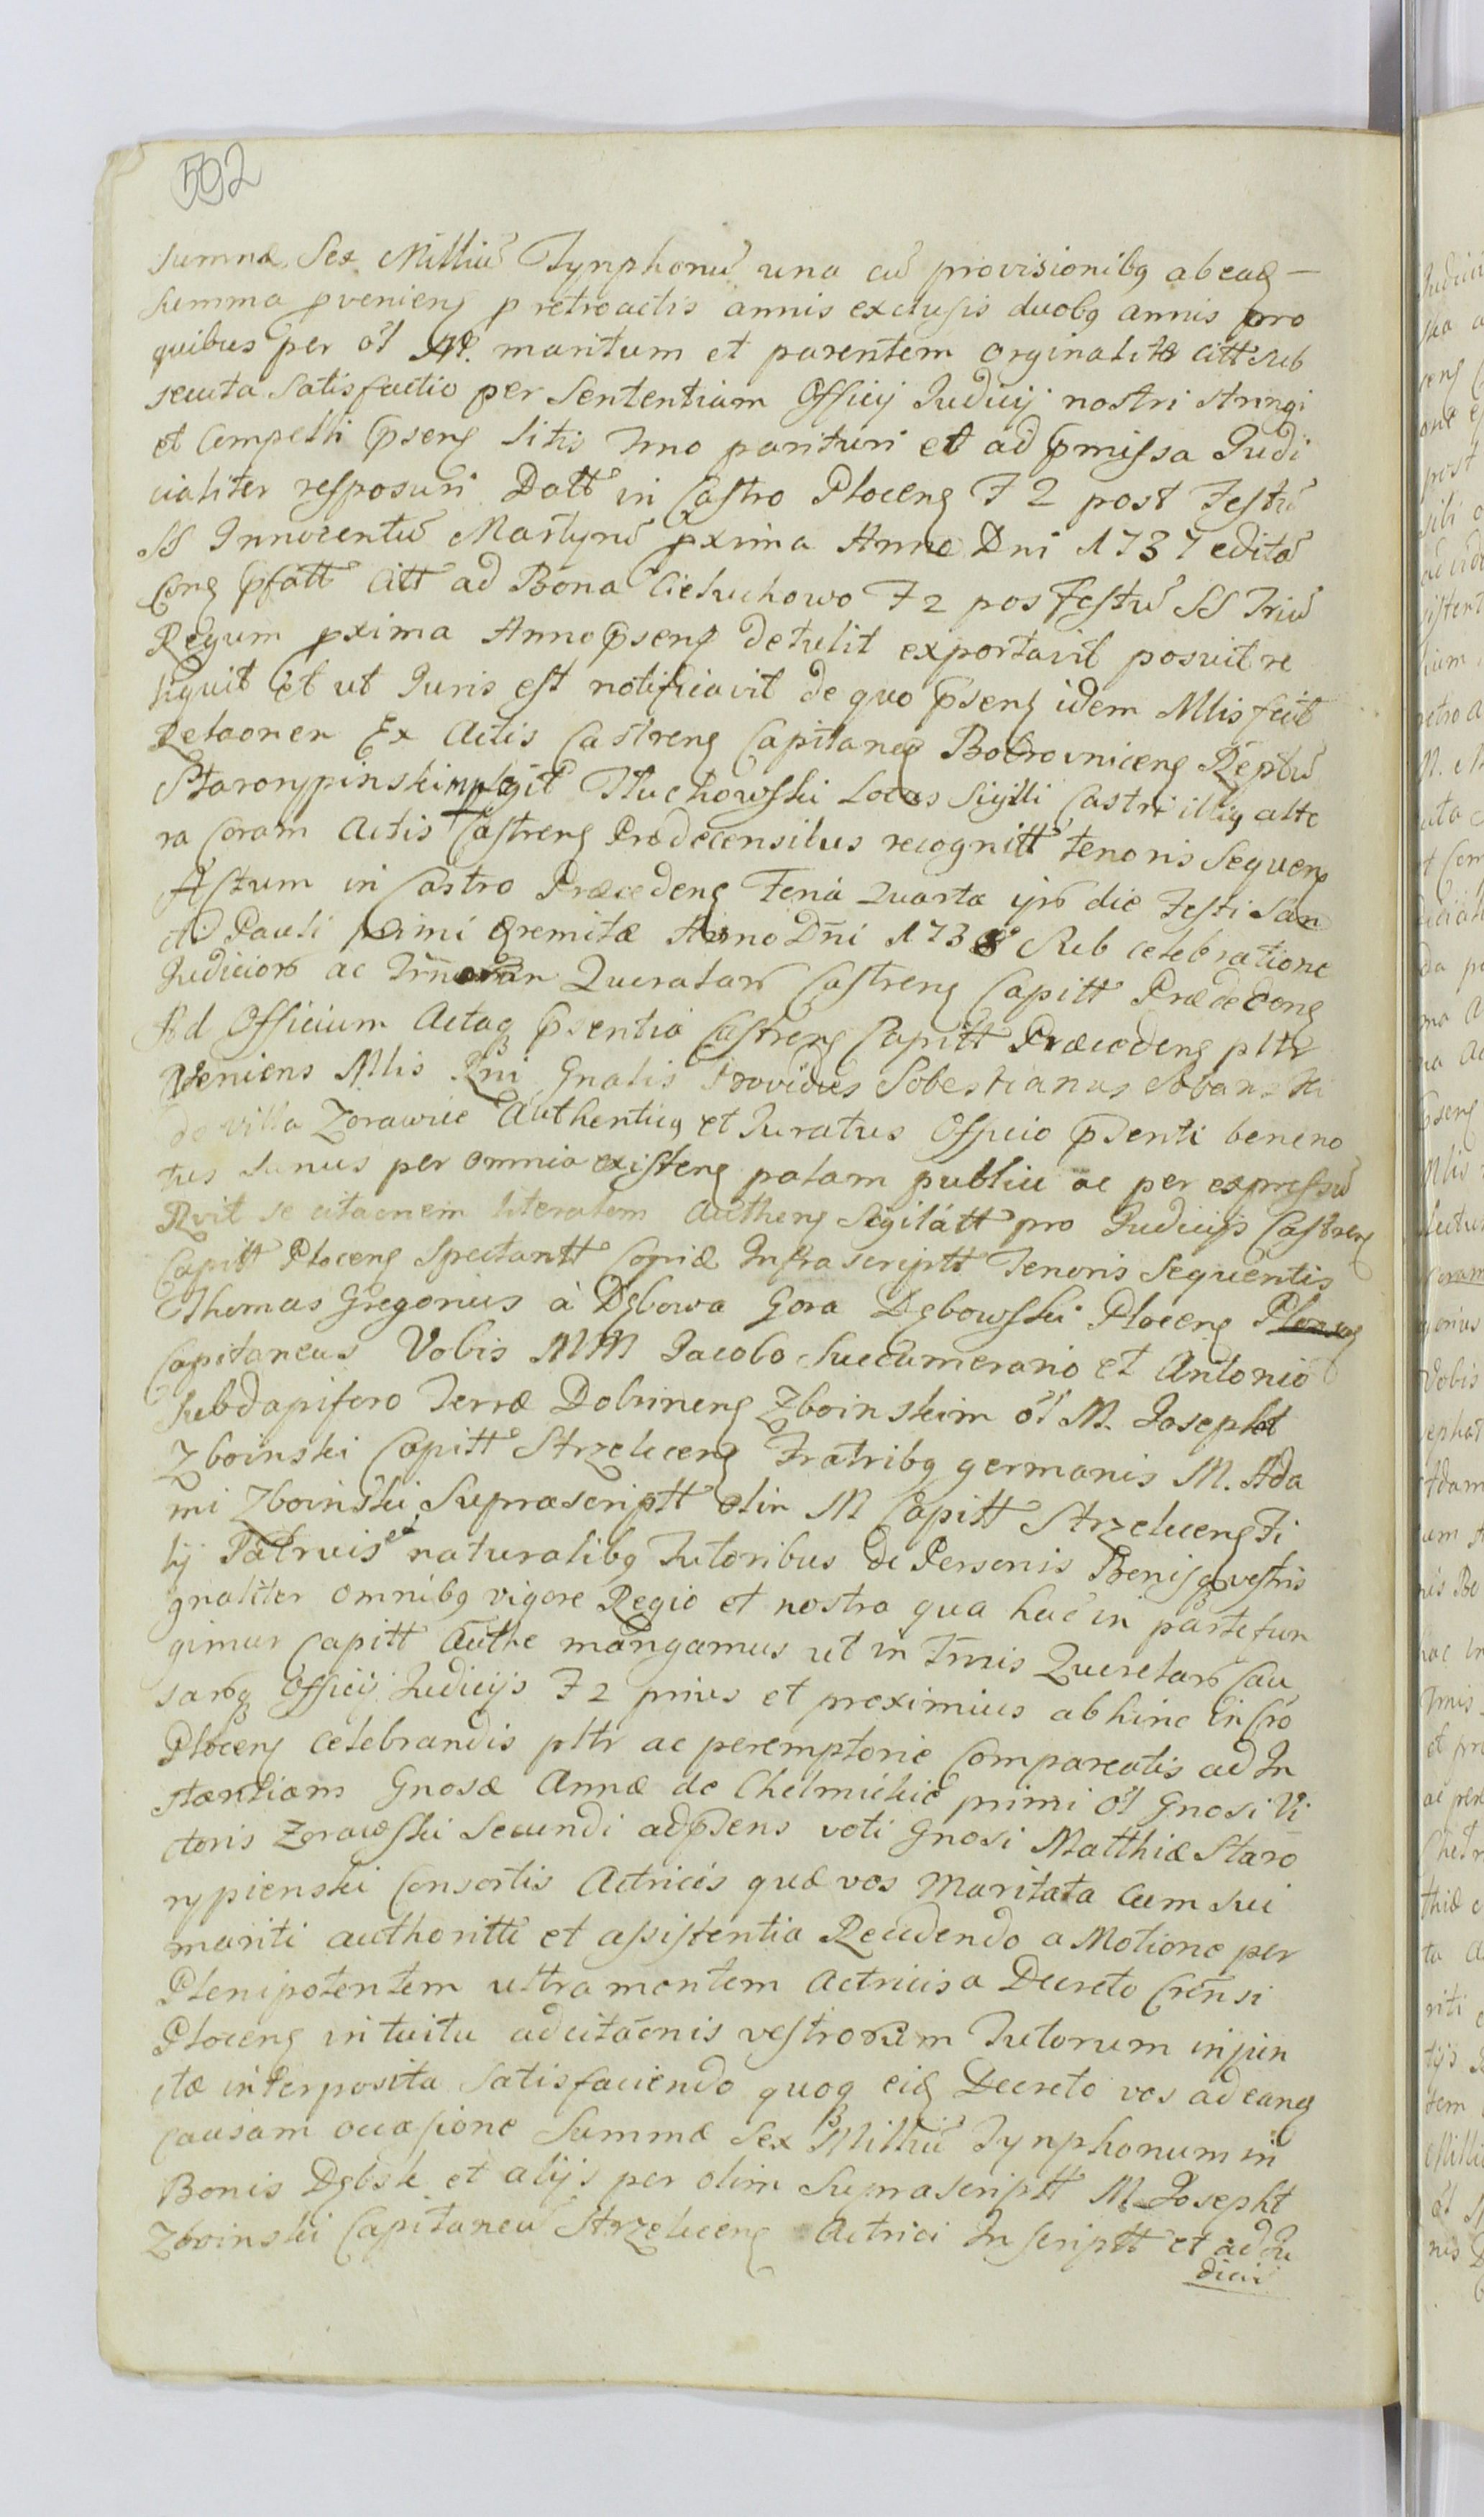 592
Summæ Sex Milliū Tynphonū una cū provisionibq abeadq —
Summa pvenienq p retroactis annis exclusis duobq annis pro
quibus per ol M. maritum et parentem orginalitr citt sub
secuta satisfactio per Sententiam Officij Judicij nostri stringi
et compelli pseng litis Tmo parituri et ad pmissa Judi
cialiter resposuri Datt in Castro Ploceng F 2 post Festū
SS Innocentū Martyrū pxima Anno Dni 1737 editā
Conq pfatt Citt ad Bona Cieluchowo F2 pos Festū SS Triū
Regum pxima Anno pseng detulit exportavit posuit re
liquit et ut Juris est notificavit de quo pseng idem Mlis fecit
Relaonem Ex Actis Castreng Capitaneq Bobrovniceng Reptū
Starorypinski Tluchowski Locus Sigilli Castri illiq alte
ra Coram Actis Castreng Prædecensibus recognitt tenoris Sequens
Actum in Castro Præcedeng Feria Quarta ipō die Festi San
cti Pauli primi Eremitæ Anno Dñi 1738 Sub celebratione
Judiciorō ac Trnorum Querelarō Castreng Capitt Prædeceng
Ad Officium Actaq psentia Castreng Capitt Præcedeng pltr
veniens Mlis Rni Gnalis Providus Sobestianus Sobanski
de villa Zorawie Authenticq et Juratus Officio psenti beneno
tus Sanus per omnia existeng palam publice ac per expressū
Rvit se citaonem literalem Autheng Sigilatt pro Judicijs Castreng
Capitt Ploceng Spectantt Copiæ Infrascriptt Tenoris Sequentis
Thomas Gregorius à Dębowa Gora Dębowski Ploceng
Capitaneus Vobis MM Jacobo Succamerario et Antonio
Subdapifero Terræ Dobrineng Zboinskim ol M. Josepht
Zboinski Capitt Strzeleceng Fratribq germanis M. Ada
mi Zboinski Supræscriptt olim M Capitt Strzeleceng Fi
lij Patruis et naturalibq Tutoribus De Personis Benisq vestris
gnaliter omnibq vigore Regio et nostra qua hac in parte fun
gimur Capitt Authe mangamus ut in Trnis Querelarō Cau
sarōq Officij Judicijs F2 prius et proximius abhinc in Cro
Ploceng celebrandis pltr ac peremptorie Compareatis ad In
stantiam Gnosæ Annæ de Chelmickie primi ol Gnosi Vi
ctoris Zorawski Secundi adpsens voti Gnosi Matthiæ Staro
rypienski Consortis Actricis quæ vos Maritata cum sui
mariti authoritte et assistentia Recedendo a Motione per
Plenipotentem ultramontem Actricis a Decreto Crensi
Ploceng intuitu adcitaonis vestrorum Tutorum injun
ctæ interposita Satisfaciendo quoq eidq Decreto vos ad eandq
Causam occasione Summæ Sex Milliū Tynphonum in
Bonis Dębsk et alijs per olim Suprascriptt M. Josepht
Zboinski Capitaneū Strzeleceng Actrici Inscriptt et adJu
dicat